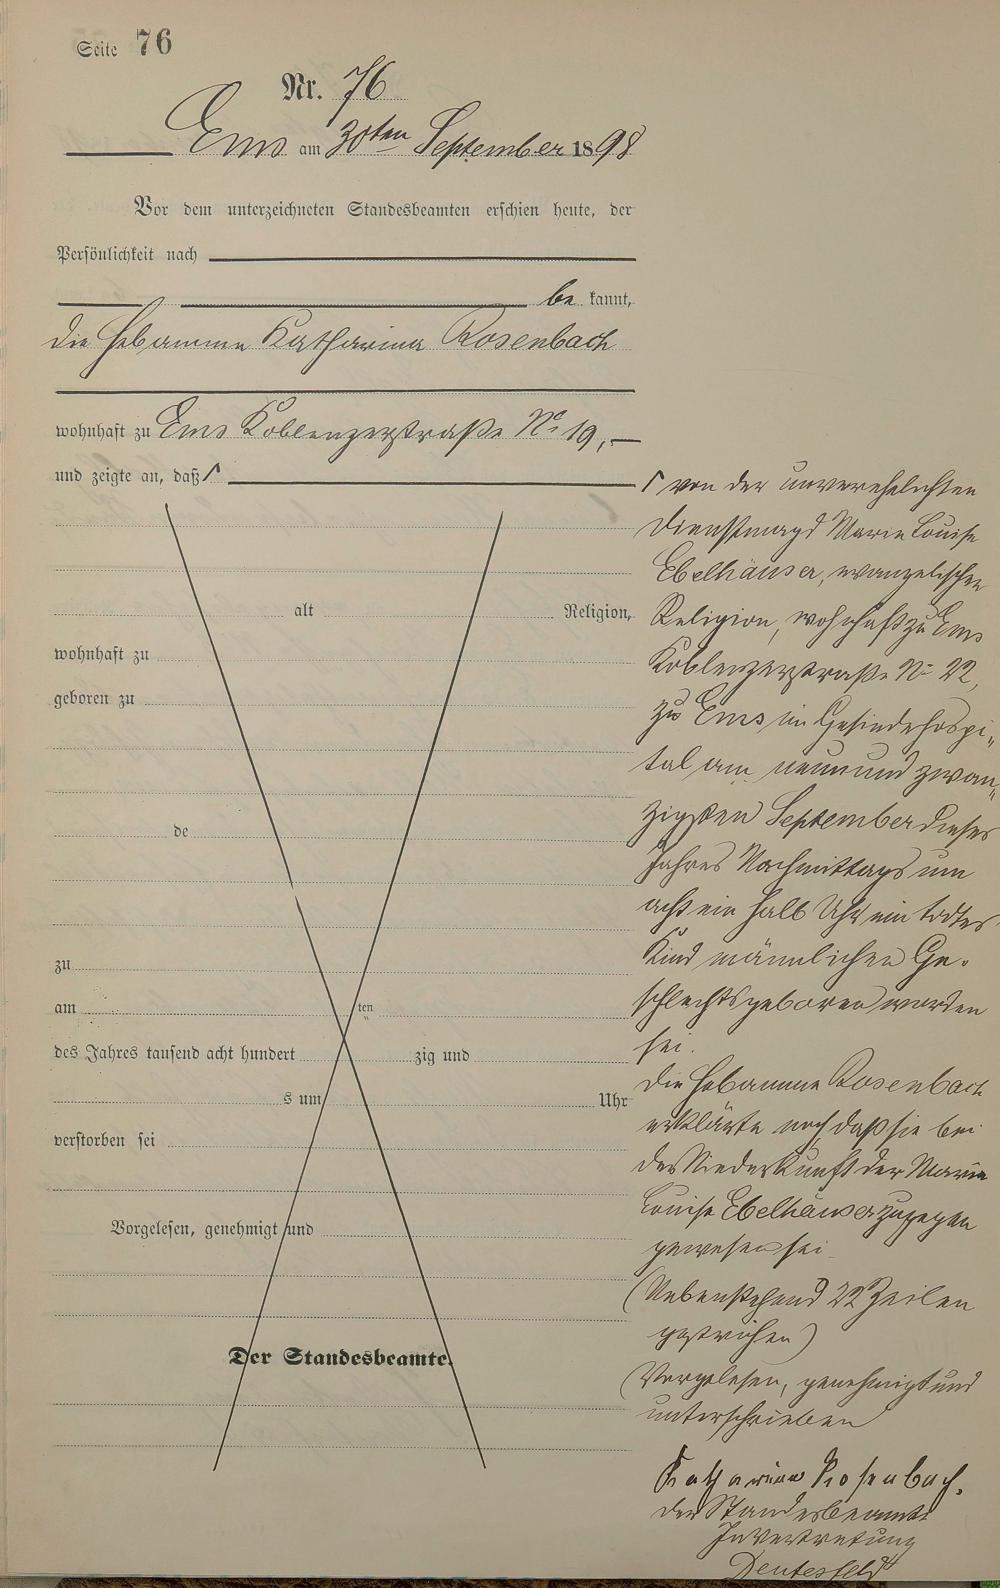 Seite 76
Nr. 76
Ems am 30ten September 1898
Vor dem unterzeichneten Standesbeamten erschien heute, der
Persönlichkeit nach
be kannt,
die Hebamme Katharina Rosenbach
wohnhaft zu Ems Koblenzerstraße No 19,
und zeigte an, daß
alt Religion,
wohnhaft zu
geboren zu
de
zu
am ten
des Jahres tausend acht hundert zig und
s um Uhr
verstorben sei
Vorgelesen, genehmigt und
Der Standesbeamte.
von der unverehelichten
Dienstmagd Marie Louise
Ebelhäuser, evangelischer
Religion, wohnhaft zu Ems
Koblenzerstraße No 22,
zu Ems im Gesindehospi-
tal am neunundzwan-
zigsten September dieses
Jahres Nachmittags um
acht ein halb Uhr ein todtes
Kind männlichen Ge-
schlechts geboren worden
sei.
Die Hebamme Rosenbach
erklärte noch, daß sie bei
der Niederkunft der Marie
Louise Ebelhäuser zugegen
gewesen sei.
(Nebenstehend 22 Zeilen
gestrichen)
Vorgelesen, genehmigt und
unterschrieben
Katharina Rosenbach.
der Standesbeamte
In Vertretung